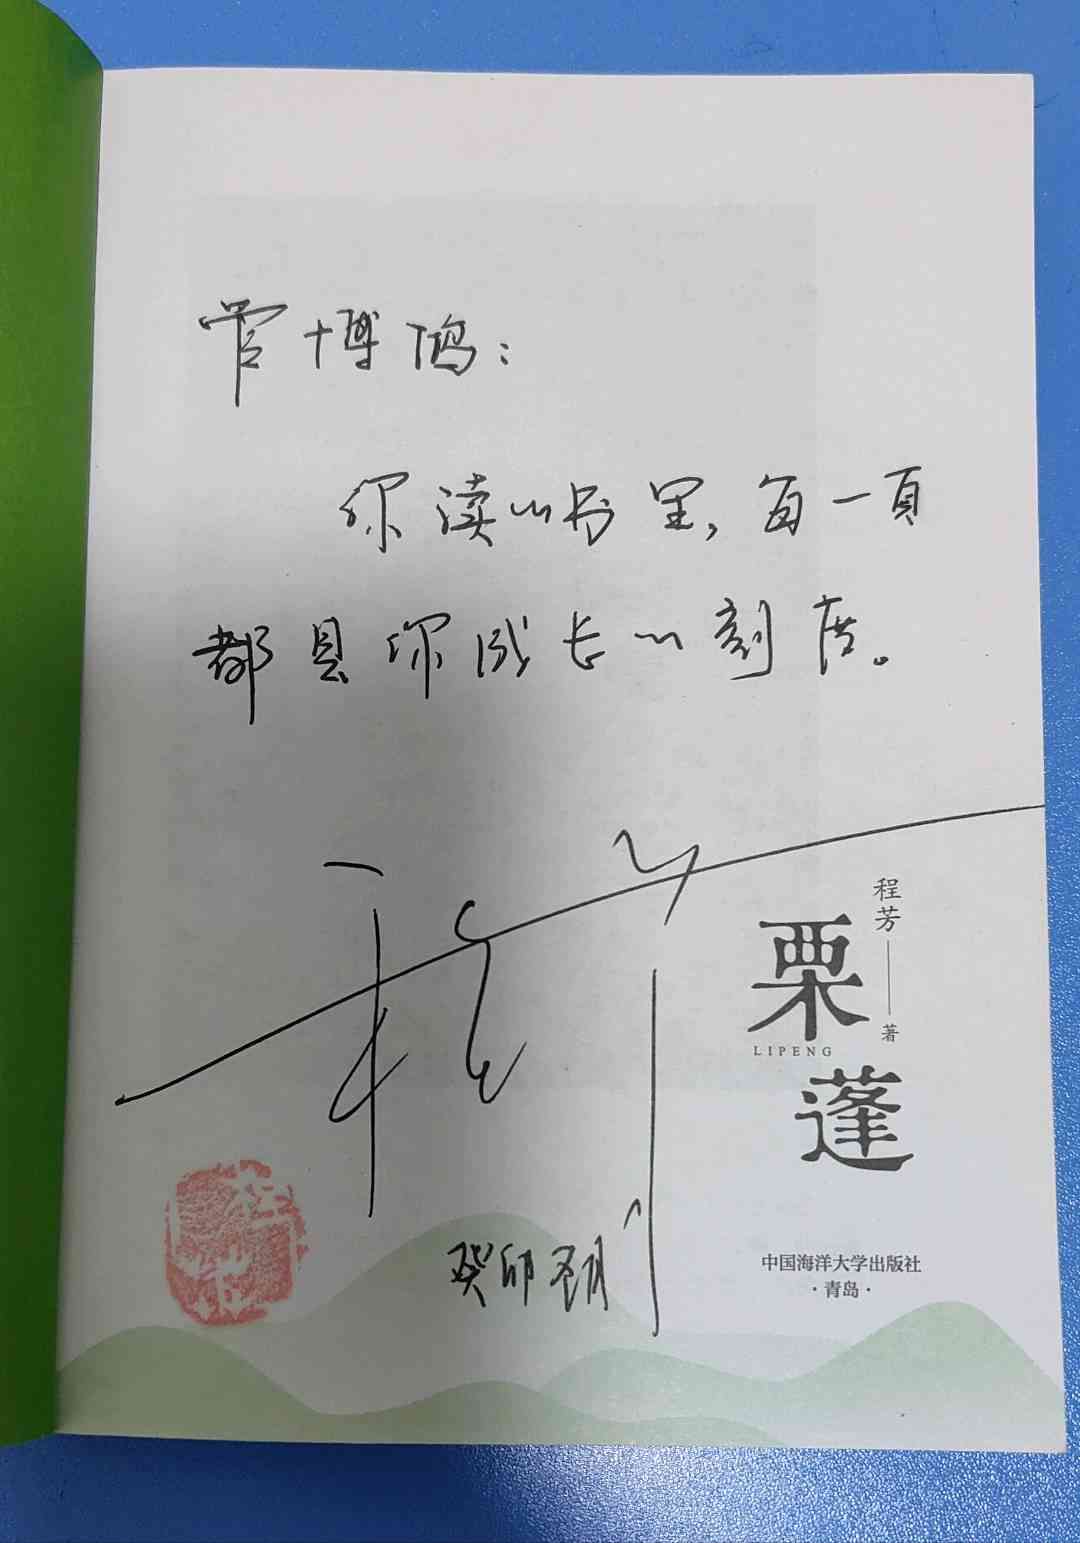 管博鸿：
你读的书里，每一頁
都是你成长的刻度。
程芳
著
栗
LIPENG
蓬
癸卯
中国海洋大学出版社
·青岛·